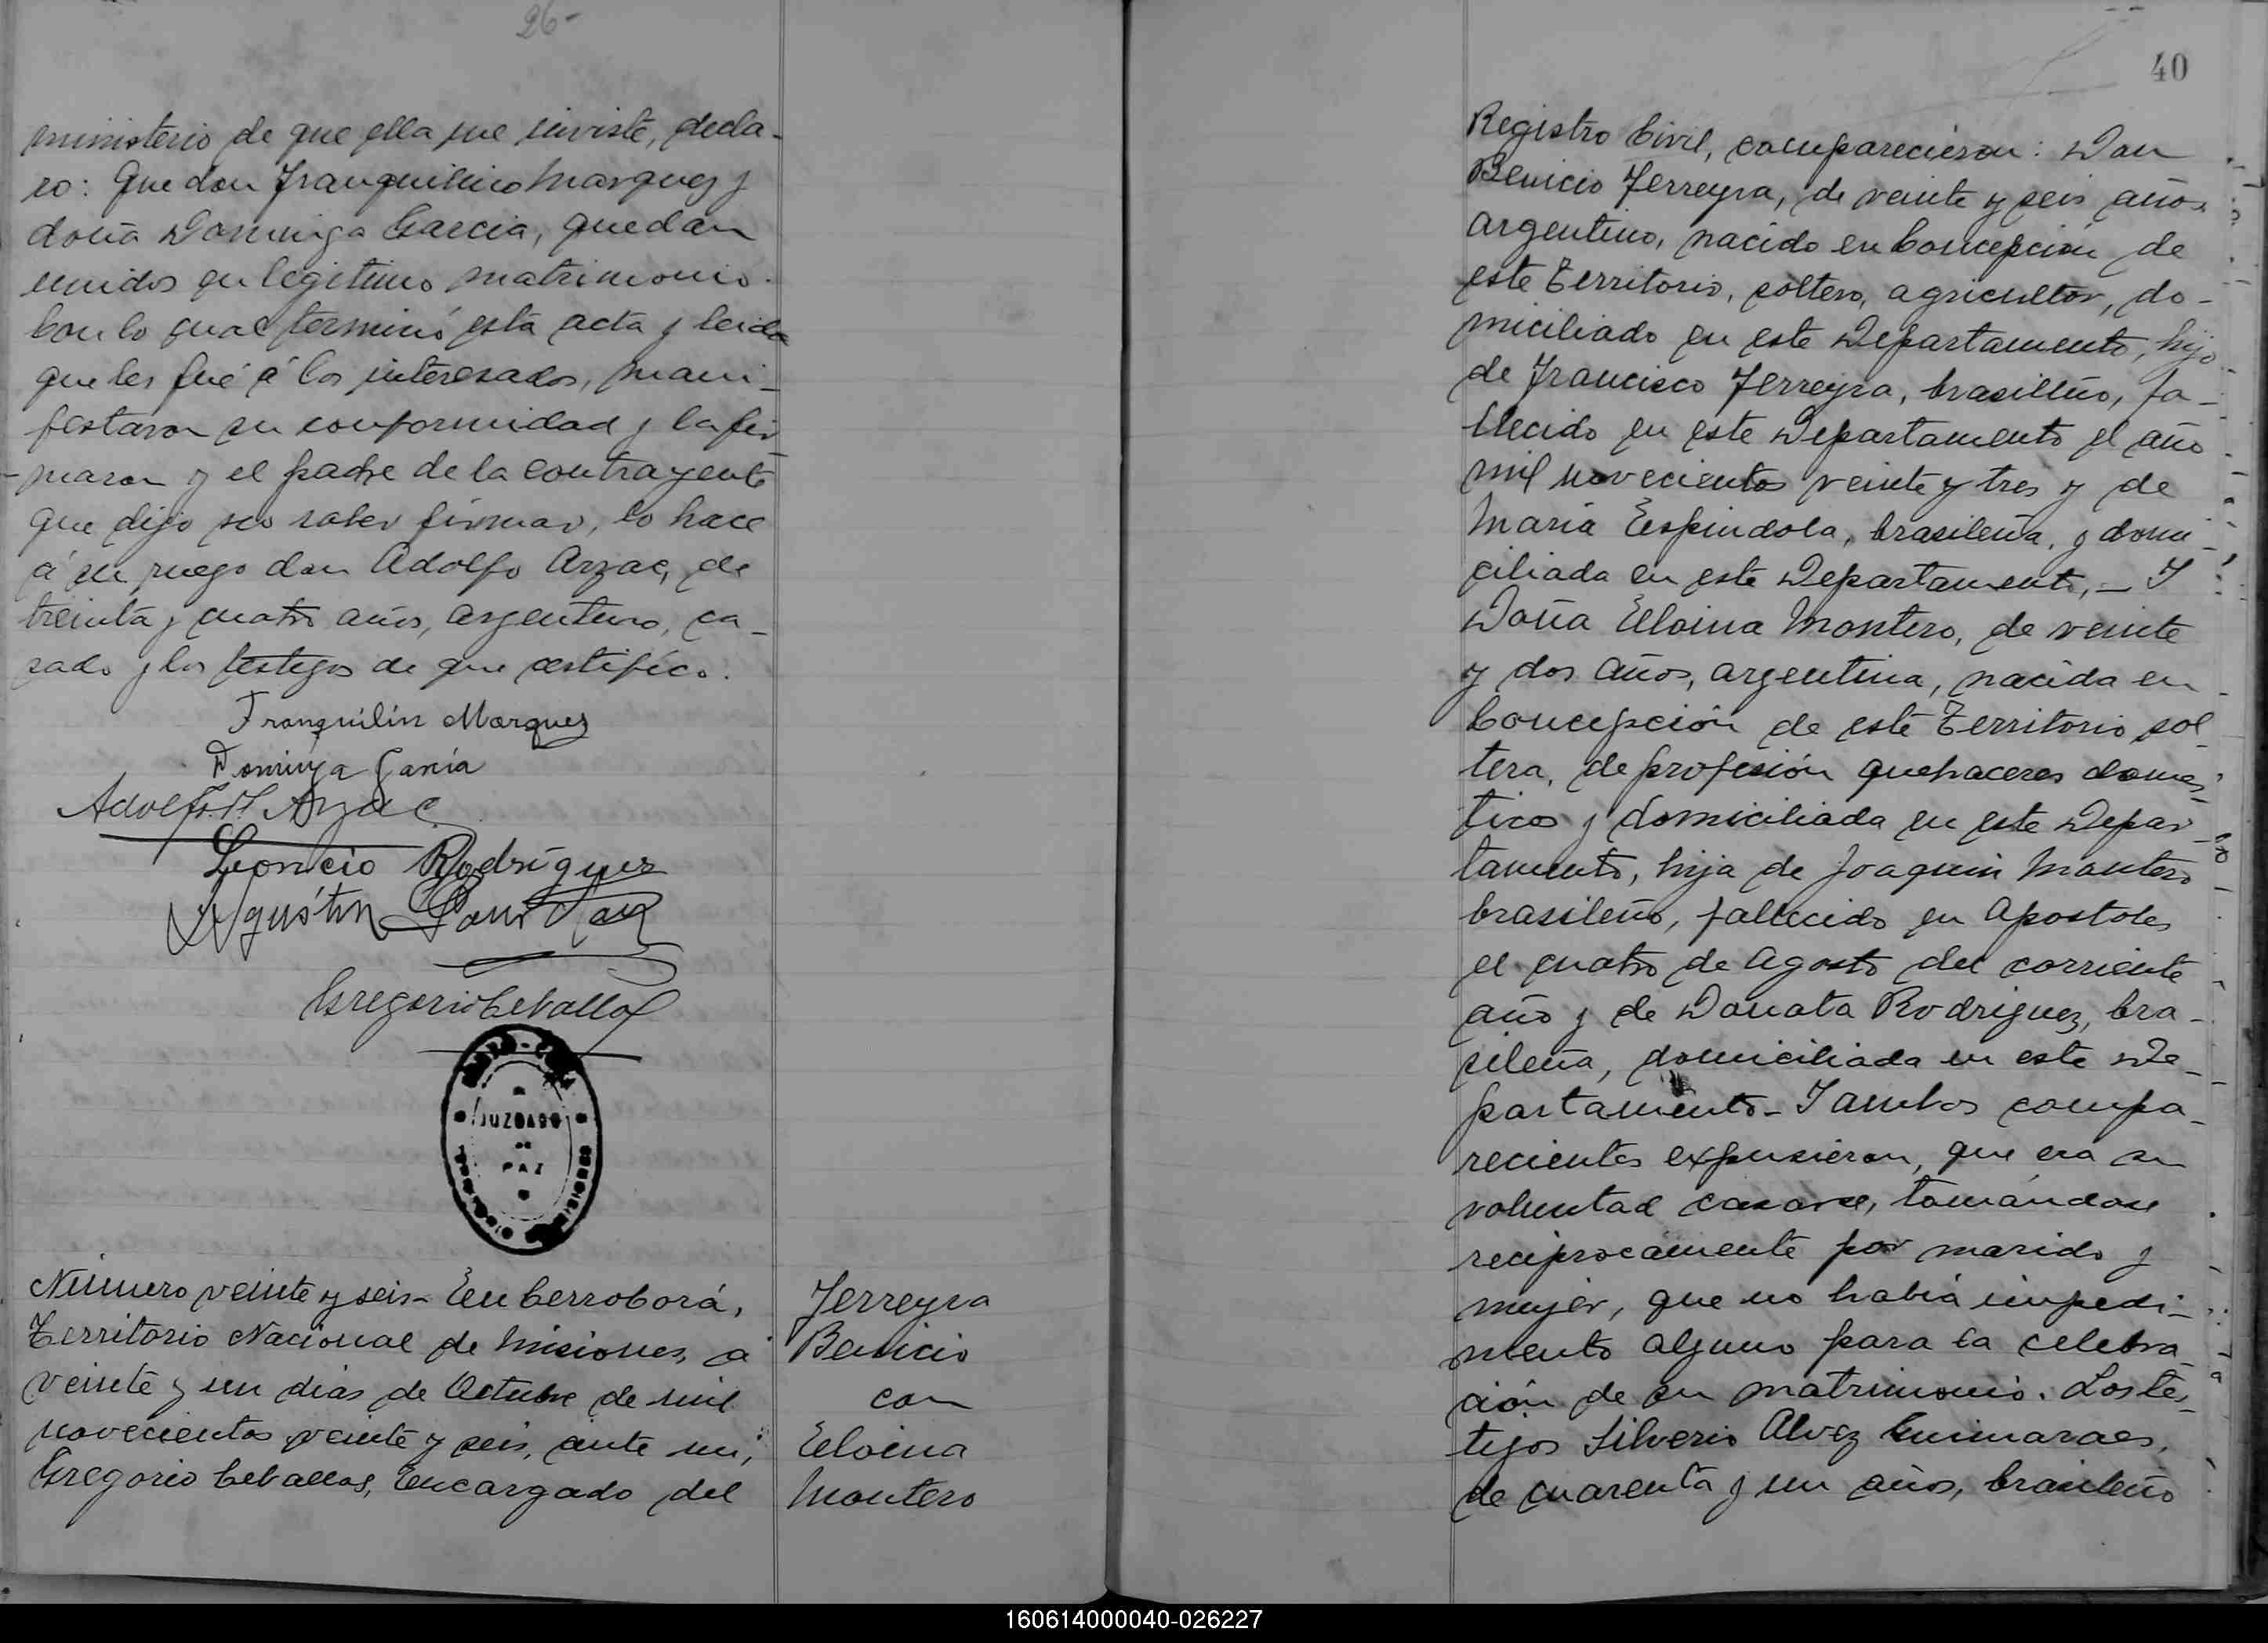 26-
ministerio de que ella me inviste, decla-
ro: Que don Tranquilino Marquez y
doña Dominga Garcia, quedan
unidos en legitimo matrimonio.
Con lo cual terminó esta acta y leida
que les fué á los interesados, mani-
festaron su conformidad y la fir-
maron y el padre de la contrayente
que dijo no saber firmar, lo hace
á su ruego don Adolfo Arzac, de
treinta y cuatro años, argentino, ca-
sado y los testigos de que certifico.
Tranquilin Marquez
Dominga Garcia
Adolfo Arzac
Leoncio Rodríguez
Agustín
Gregorio Ceballos
JUZGADO
DE
PAZ
Número veinte y seis- En Cerro Corá,
Territorio Nacional de Misiones, á
veinte y un dias de Octubre de mil
novecientos veinte y seis, ante mi,
Gregorio Ceballos, Encargado del
Ferreyra
Benicio
con
Eloina
Montero
40
Registro Civil, comparecieron: Don
Benicio Ferreyra, de veinte y seis años
argentino, nacido en Concepción de
este Territorio, soltero, agricultor, do-
miciliado en este Departamento, hijo
de Francisco Ferreyra, brasileño, fa-
llecido en este Departamento el año
mil novecientos veinte y tres y de
Maria Espindola, brasileña, y domi-
ciliada en este Departamento,- Y
Doña Eloina Montero, de veinte
y dos años, argentina, nacida en
Concepción de este Territorio sol-
tera, de profesión quehaceres domes-
ticos y domiciliada en este Depar-
tamento, hija de Joaquin Montero
brasileño, fallecido en Apostoles
el cuatro de Agosto del corriente
año y de Donata Rodriguez, bra-
sileña, domiciliada en este De-
partamento- Y ambos compa-
recientes expusieron, que era su
voluntad casarse, tomándose
reciprocamente por marido y
mujer, que no habia impedi-
mento alguno para la celebra-
ción de su matrimonio. Los tes-
tigos Silverio Alvez Guimaraes,
de cuarenta y un años, brasileño
160614000040-026227